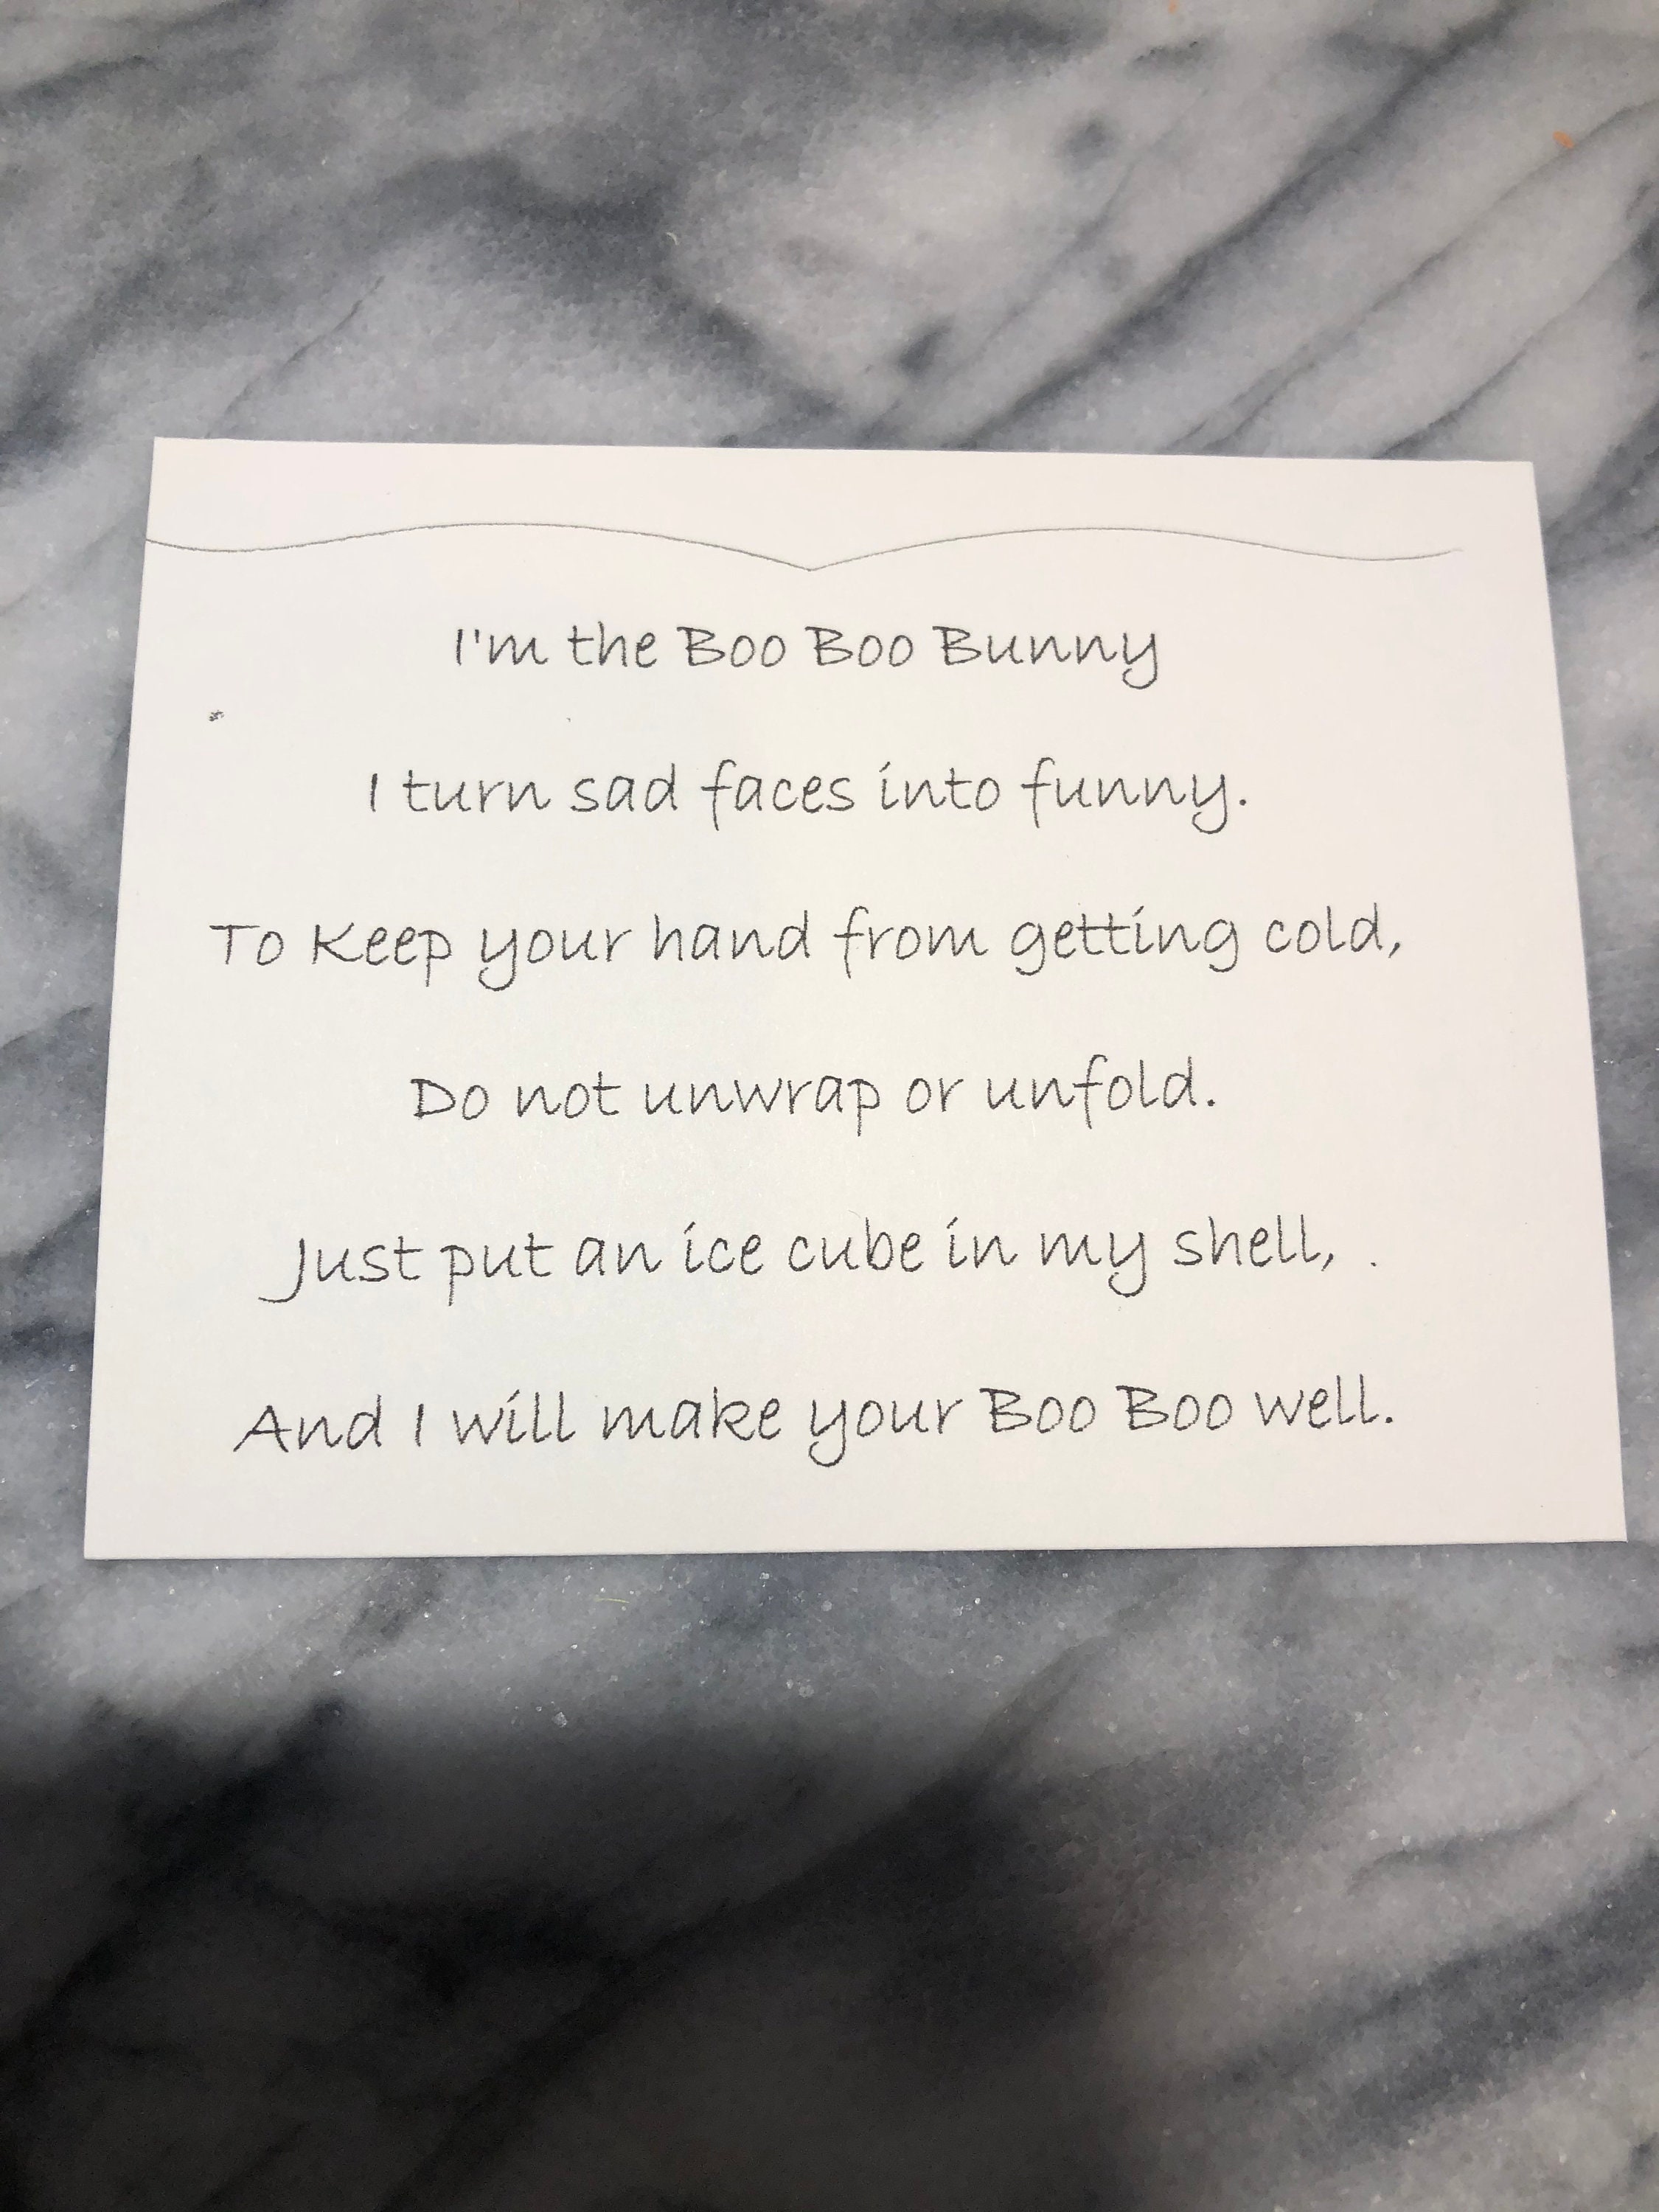 I'm the Boo Boo Bunny
I turn sad faces into funny.
To Keep your hand from getting cold,
Do not unwrap or unfold.
Just put an ice cube in my shell, .
And I will make your Boo Boo well.